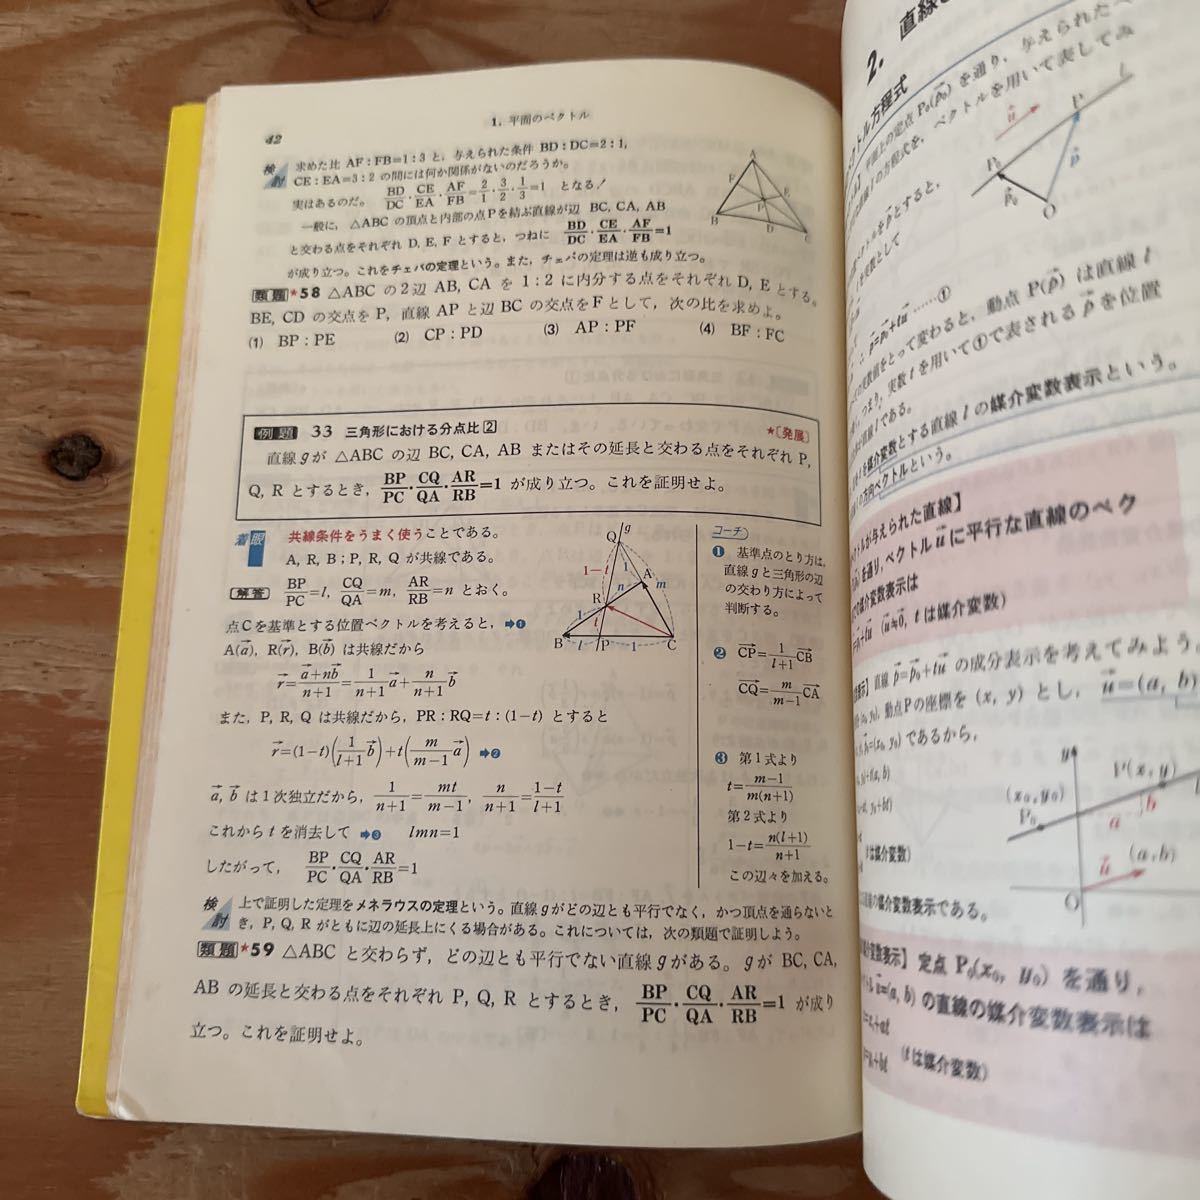 42
1. 平面のベクトル
検討 求めた比 AF:FB=1:3 と，与えられた条件 BD:DC=2:1,
CE:EA=3:2 の間には何か関係がないのだろうか。
実はあるのだ。 BD/DC・CE/EA・AF/FB=2/1・3/2・1/3=1 となる！
一般に，△ABC の頂点と内部の点Pを結ぶ直線が辺 BC, CA, AB
と交わる点をそれぞれ D, E, F とすると，つねに BD/DC・CE/EA・AF/FB=1
が成り立つ。これをチェバの定理という。また，チェバの定理は逆も成り立つ。
A
F
E
P
B
D
C
類題 *58 △ABC の2辺 AB, CA を 1:2 に内分する点をそれぞれ D, E とする。
BE, CD の交点を P, 直線 AP と辺 BC の交点を F として，次の比を求めよ。
(1) BP:PE (2) CP:PD (3) AP:PF (4) BF:FC
例題 33 三角形における分点比[2] *〔発展〕
直線 g が △ABC の辺 BC, CA, AB またはその延長と交わる点をそれぞれ P,
Q, R とするとき，BP/PC・CQ/QA・AR/RB=1 が成り立つ。これを証明せよ。
着眼 共線条件をうまく使うことである。
A, R, B；P, R, Q が共線である。
解答 BP/PC=l, CQ/QA=m, AR/RB=n とおく。
点Cを基準とする位置ベクトルを考えると，➡❶
A(a→), R(r→), B(b→) は共線だから
r→=(a→+nb→)/(n+1)=1/(n+1)a→+n/(n+1)b→
また，P, R, Q は共線だから，PR:RQ=t:(1−t) とすると
r→=(1−t)(1/(l+1)b→)+t(m/(m−1)a→) ➡❷
a→, b→ は1次独立だから，1/(n+1)=mt/(m−1), n/(n+1)=(1−t)/(l+1)
これから t を消去して ➡❸ lmn=1
したがって，BP/PC・CQ/QA・AR/RB=1
Q
g
1
A
m
1−t
n
R
1
t
B
l
P
1
C
コーチ
❶ 基準点のとり方は，
直線 g と三角形の辺
の交わり方によって
判断する。
❷ CP→=1/(l+1)CB→
CQ→=m/(m−1)CA→
❸ 第1式より
t=(m−1)/(m(n+1))
第2式より
1−t=n(l+1)/(n+1)
この辺々を加える。
検討 上で証明した定理をメネラウスの定理という。直線 g がどの辺とも平行でなく，かつ頂点を通らないと
き，P, Q, R がともに辺の延長上にくる場合がある。これについては，次の類題で証明しよう。
類題 *59 △ABC と交わらず，どの辺とも平行でない直線 g がある。g が BC, CA,
AB の延長と交わる点をそれぞれ P, Q, R とするとき，BP/PC・CQ/QA・AR/RB=1 が成り
立つ。これを証明せよ。
2. 直線
トル方程式
平面上の定点 P₀(p₀→) を通り，与えられたベ
の方程式を，ベクトルを用いて表してみ
u→
P
l
P₀
p→
p₀→
O
を p→ とすると，
を実数として
∴ p→=p₀→+tu→ ……①
の実数値をとって変わると，動点 P(p→) は直線 l
つまり，実数 t を用いて①で表される p→ を位置
は直線 l である。
t を媒介変数とする直線 l の媒介変数表示という。
の方向ベクトルという。
トルが与えられた直線】
を通り，ベクトル u→ に平行な直線のベク
媒介変数表示は
+tu→ (u→≠0→, t は媒介変数)
表示】直線 p→=p₀→+tu→ の成分表示を考えてみよう。
(x₀, y₀), 動点Pの座標を (x, y) とし，u→=(a, b)
p₀→=(x₀, y₀) であるから，
+t(a, b)
y₀+bt)
(t は媒介変数)
の媒介変数表示である。
y
P(x, y)
(x₀, y₀)
P₀
a
b
u→
(a, b)
O
介変数表示】定点 P₀(x₀, y₀) を通り，
u→=(a, b) の直線の媒介変数表示は
+at
+bt (t は媒介変数)